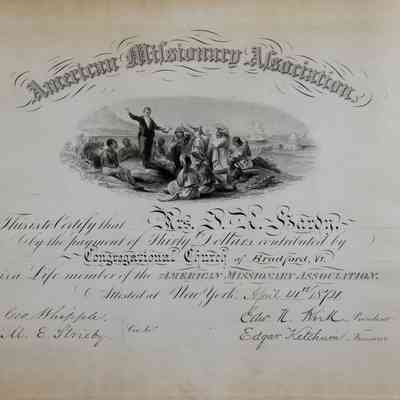 American Missionary Association.
This is to Certify that Mrs. S. N. Hardy,
by the payment of Thirty Dollars contributed by
Congregational Church of Bradford, Vt.
is a Life member of the AMERICAN MISSIONARY ASSOCIATION.
Attested at New York, April 1874
Geo Whipple,
M. E. Strieby Sec's
President
Edgar Ketchum Treasurer